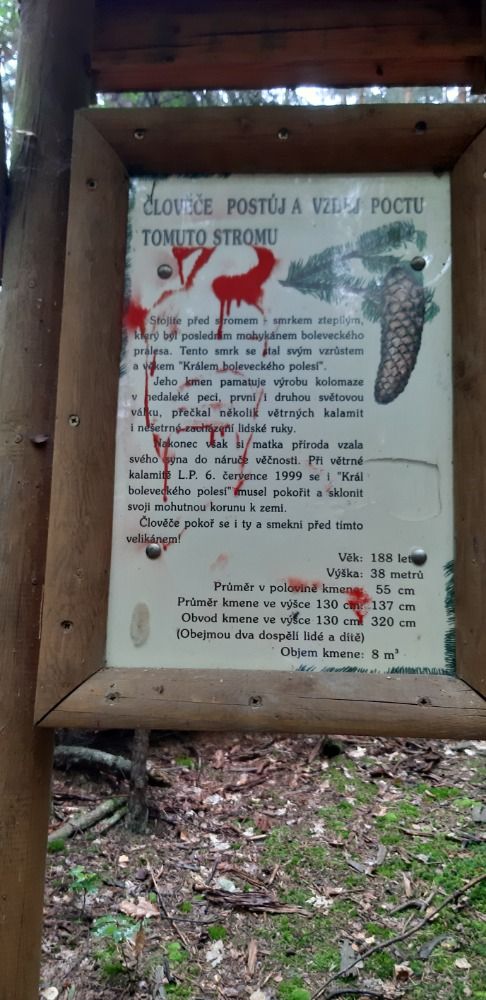 ČLOVĚČE POSTŮJ A VZDEJ POCTU
TOMUTO STROMU
Stojíte před stromem - smrkem ztepilým,
který byl posledním mohykánem boleveckého
pralesa. Tento smrk se stal svým vzrůstem
a věkem "Králem boleveckého polesí".
Jeho kmen pamatuje výrobu kolomaze
v nedaleké peci, první i druhou světovou
válku, přečkal několik větrných kalamit
i nešetrné zacházení lidské ruky.
Nakonec však si matka příroda vzala
svého syna do náruče věčnosti. Při větrné
kalamitě L.P. 6. července 1999 se i "Král
boleveckého polesí" musel pokořit a sklonit
svoji mohutnou korunu k zemi.
Člověče pokoř se i ty a smekni před tímto
velikánem!
Věk: 188 let
Výška: 38 metrů
Průměr v polovině kmene: 55 cm
Průměr kmene ve výšce 130 cm: 137 cm
Obvod kmene ve výšce 130 cm: 320 cm
(Obejmou dva dospělí lidé a dítě)
Objem kmene: 8 m³